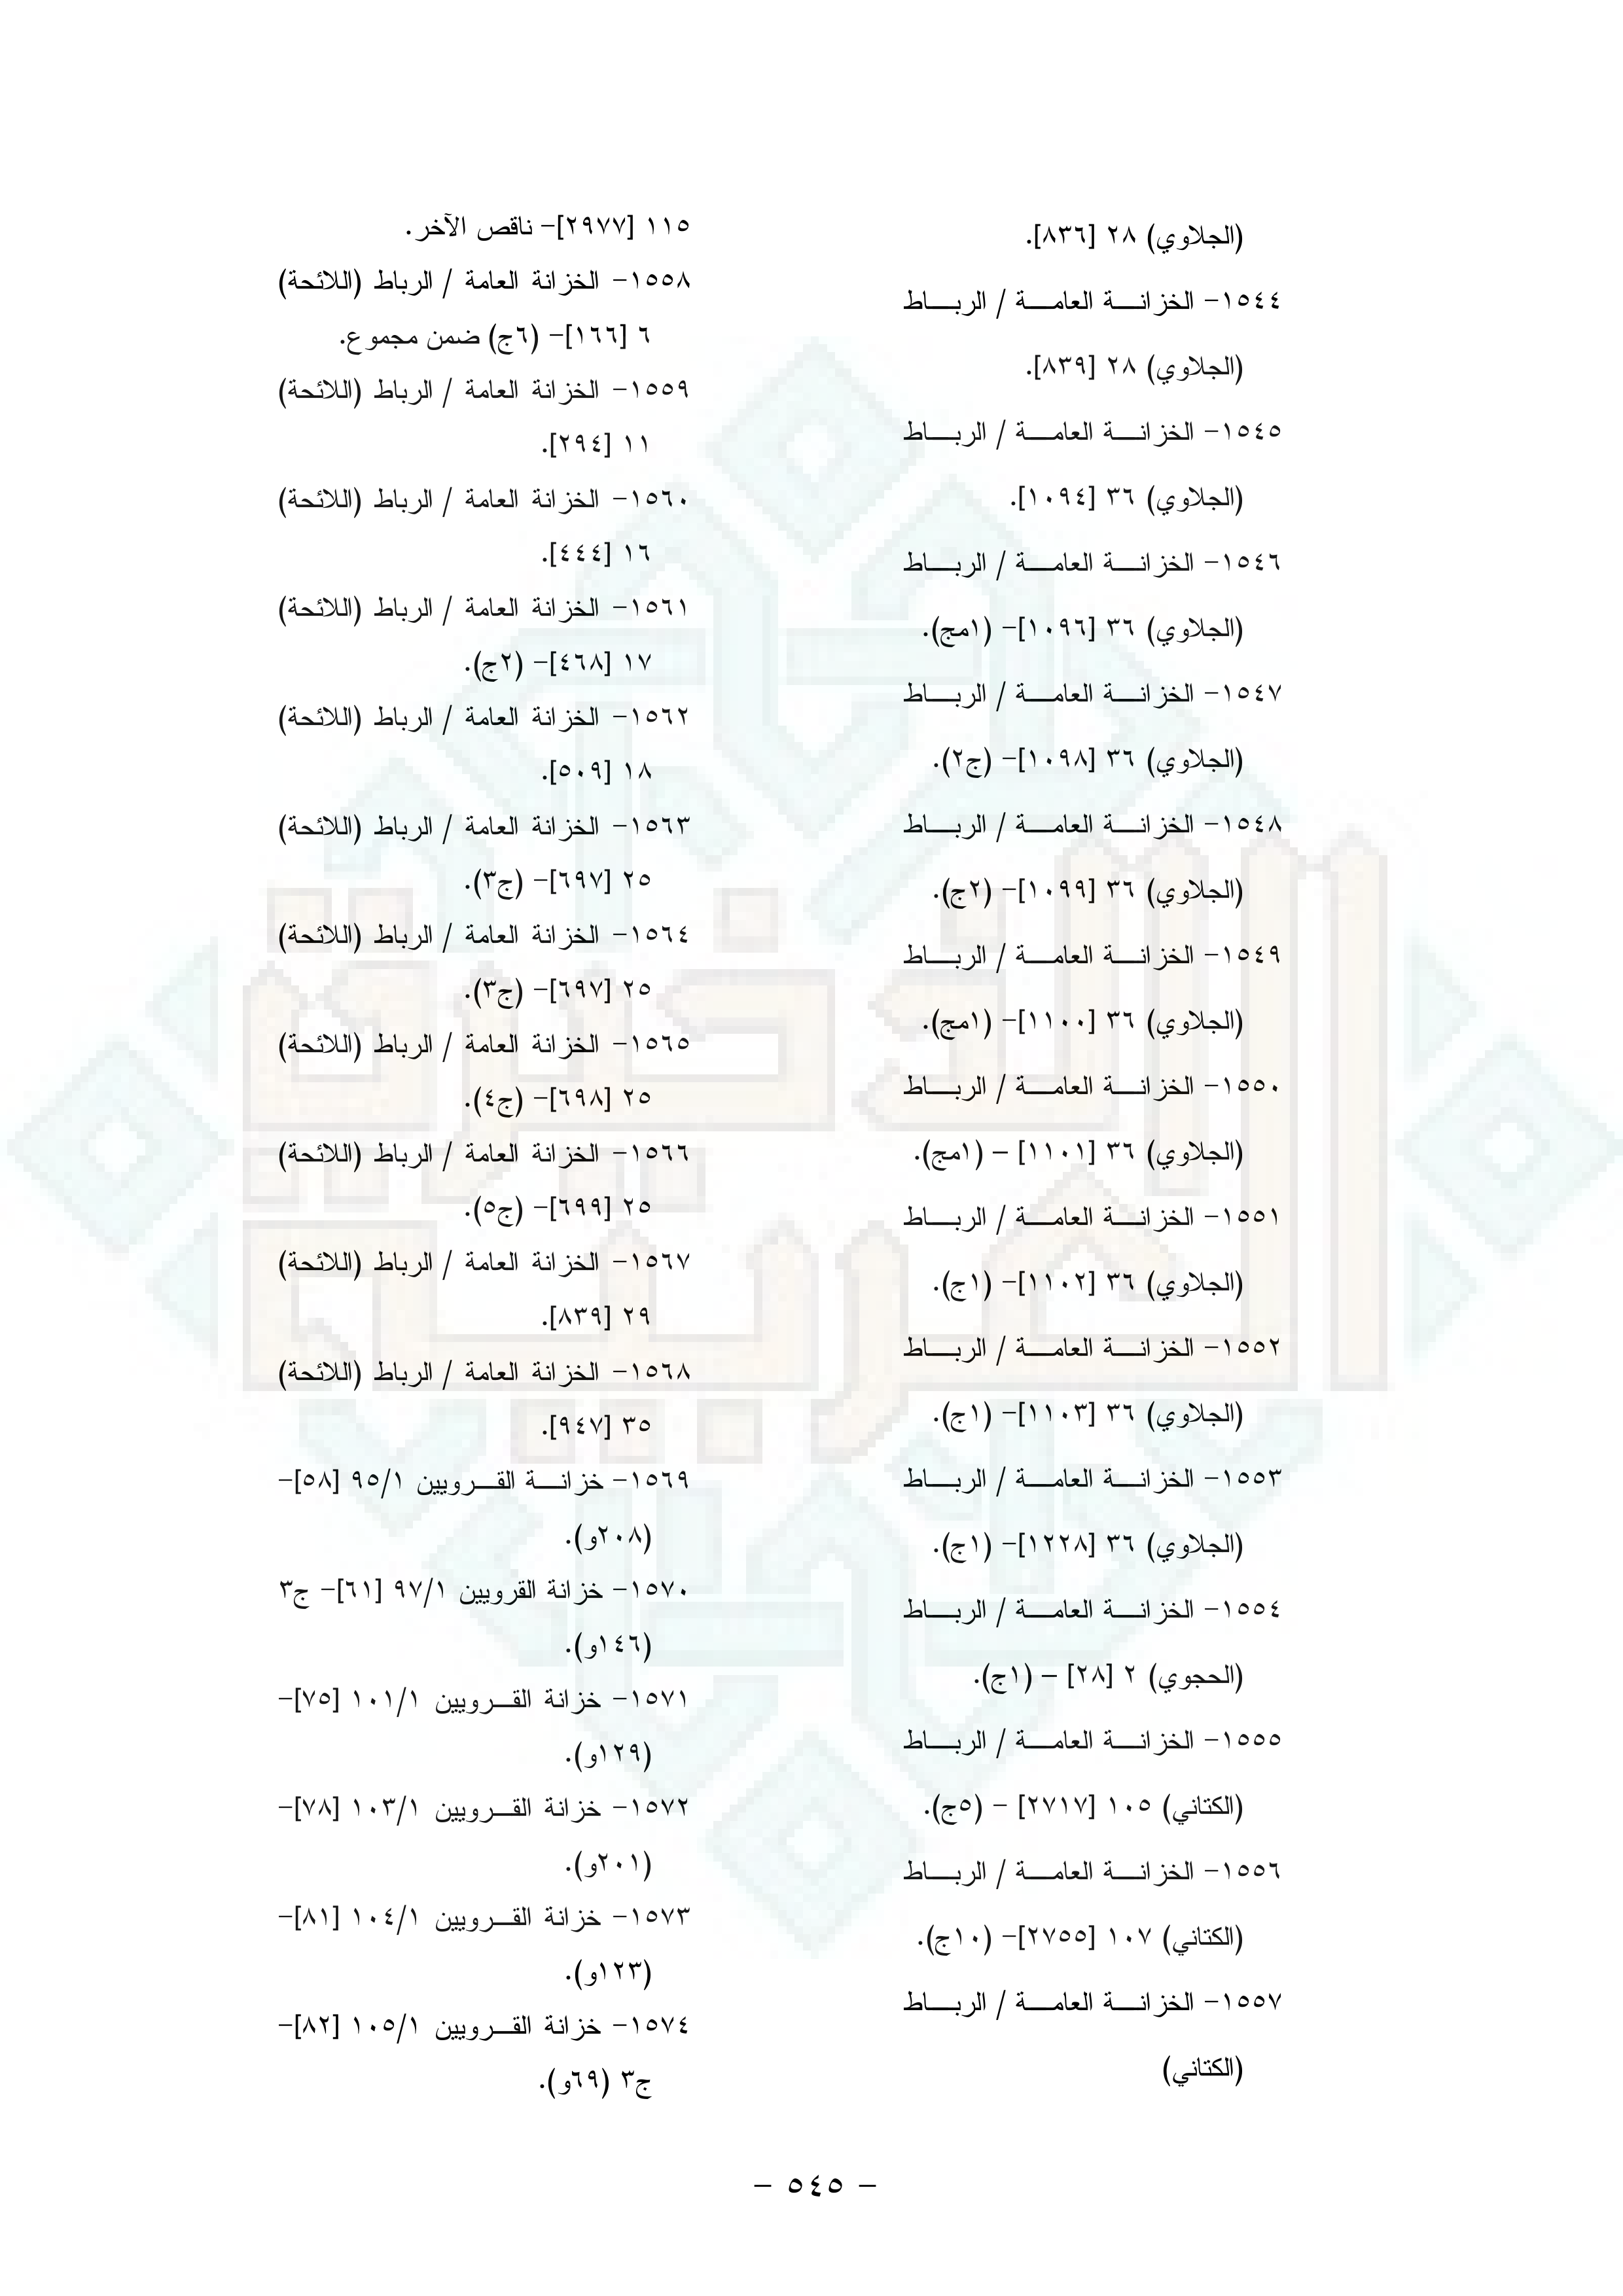 (الجلاوي) ٢٨ [٨٣٦].
١٥٤٤- الخزانة العامة / الرباط
(الجلاوي) ٢٨ [٨٣٩].
١٥٤٥- الخزانة العامة / الرباط
(الجلاوي) ٣٦ [١٠٩٤].
١٥٤٦- الخزانة العامة / الرباط
(الجلاوي) ٣٦ [١٠٩٦]- (١مج).
١٥٤٧- الخزانة العامة / الرباط
(الجلاوي) ٣٦ [١٠٩٨]- (ج٢).
١٥٤٨- الخزانة العامة / الرباط
(الجلاوي) ٣٦ [١٠٩٩]- (٢ج).
١٥٤٩- الخزانة العامة / الرباط
(الجلاوي) ٣٦ [١١٠٠]- (١مج).
١٥٥٠- الخزانة العامة / الرباط
(الجلاوي) ٣٦ [١١٠١] - (١مج).
١٥٥١- الخزانة العامة / الرباط
(الجلاوي) ٣٦ [١١٠٢]- (١ج).
١٥٥٢- الخزانة العامة / الرباط
(الجلاوي) ٣٦ [١١٠٣]- (١ج).
١٥٥٣- الخزانة العامة / الرباط
(الجلاوي) ٣٦ [١٢٢٨]- (١ج).
١٥٥٤- الخزانة العامة / الرباط
(الحجوي) ٢ [٢٨] - (١ج).
١٥٥٥- الخزانة العامة / الرباط
(الكتاني) ١٠٥ [٢٧١٧] - (٥ج).
١٥٥٦- الخزانة العامة / الرباط
(الكتاني) ١٠٧ [٢٧٥٥]- (١٠ج).
١٥٥٧- الخزانة العامة / الرباط
(الكتاني)
١١٥ [٢٩٧٧]- ناقص الآخر.
١٥٥٨- الخزانة العامة / الرباط (اللائحة)
٦ [١٦٦]- (٦ج) ضمن مجموع.
١٥٥٩- الخزانة العامة / الرباط (اللائحة)
١١ [٢٩٤].
١٥٦٠- الخزانة العامة / الرباط (اللائحة)
١٦ [٤٤٤].
١٥٦١- الخزانة العامة / الرباط (اللائحة)
١٧ [٤٦٨]- (٢ج).
١٥٦٢- الخزانة العامة / الرباط (اللائحة)
١٨ [٥٠٩].
١٥٦٣- الخزانة العامة / الرباط (اللائحة)
٢٥ [٦٩٧]- (ج٣).
١٥٦٤- الخزانة العامة / الرباط (اللائحة)
٢٥ [٦٩٧]- (ج٣).
١٥٦٥- الخزانة العامة / الرباط (اللائحة)
٢٥ [٦٩٨]- (ج٤).
١٥٦٦- الخزانة العامة / الرباط (اللائحة)
٢٥ [٦٩٩]- (ج٥).
١٥٦٧- الخزانة العامة / الرباط (اللائحة)
٢٩ [٨٣٩].
١٥٦٨- الخزانة العامة / الرباط (اللائحة)
٣٥ [٩٤٧].
١٥٦٩- خزانة القرويين ٩٥/١ [٥٨]-
(٢٠٨و).
١٥٧٠- خزانة القرويين ٩٧/١ [٦١]- ج٣
(١٤٦و).
١٥٧١- خزانة القرويين ١٠١/١ [٧٥]-
(١٢٩و).
١٥٧٢- خزانة القرويين ١٠٣/١ [٧٨]-
(٢٠١و).
١٥٧٣- خزانة القرويين ١٠٤/١ [٨١]-
(١٢٣و).
١٥٧٤- خزانة القرويين ١٠٥/١ [٨٢]-
ج٣ (٦٩و).
- ٥٤٥ -